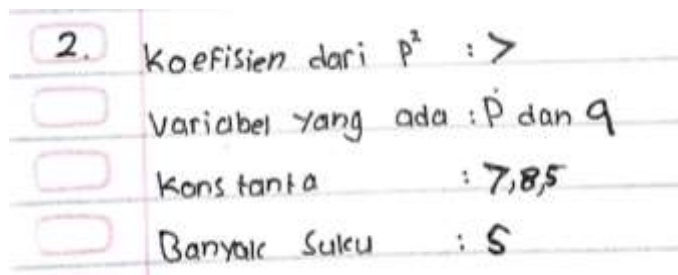 2. Koefisien dari p² : >
Variabel yang ada : p dan q
Konstanta : 7,8,5
Banyak Suku : 5